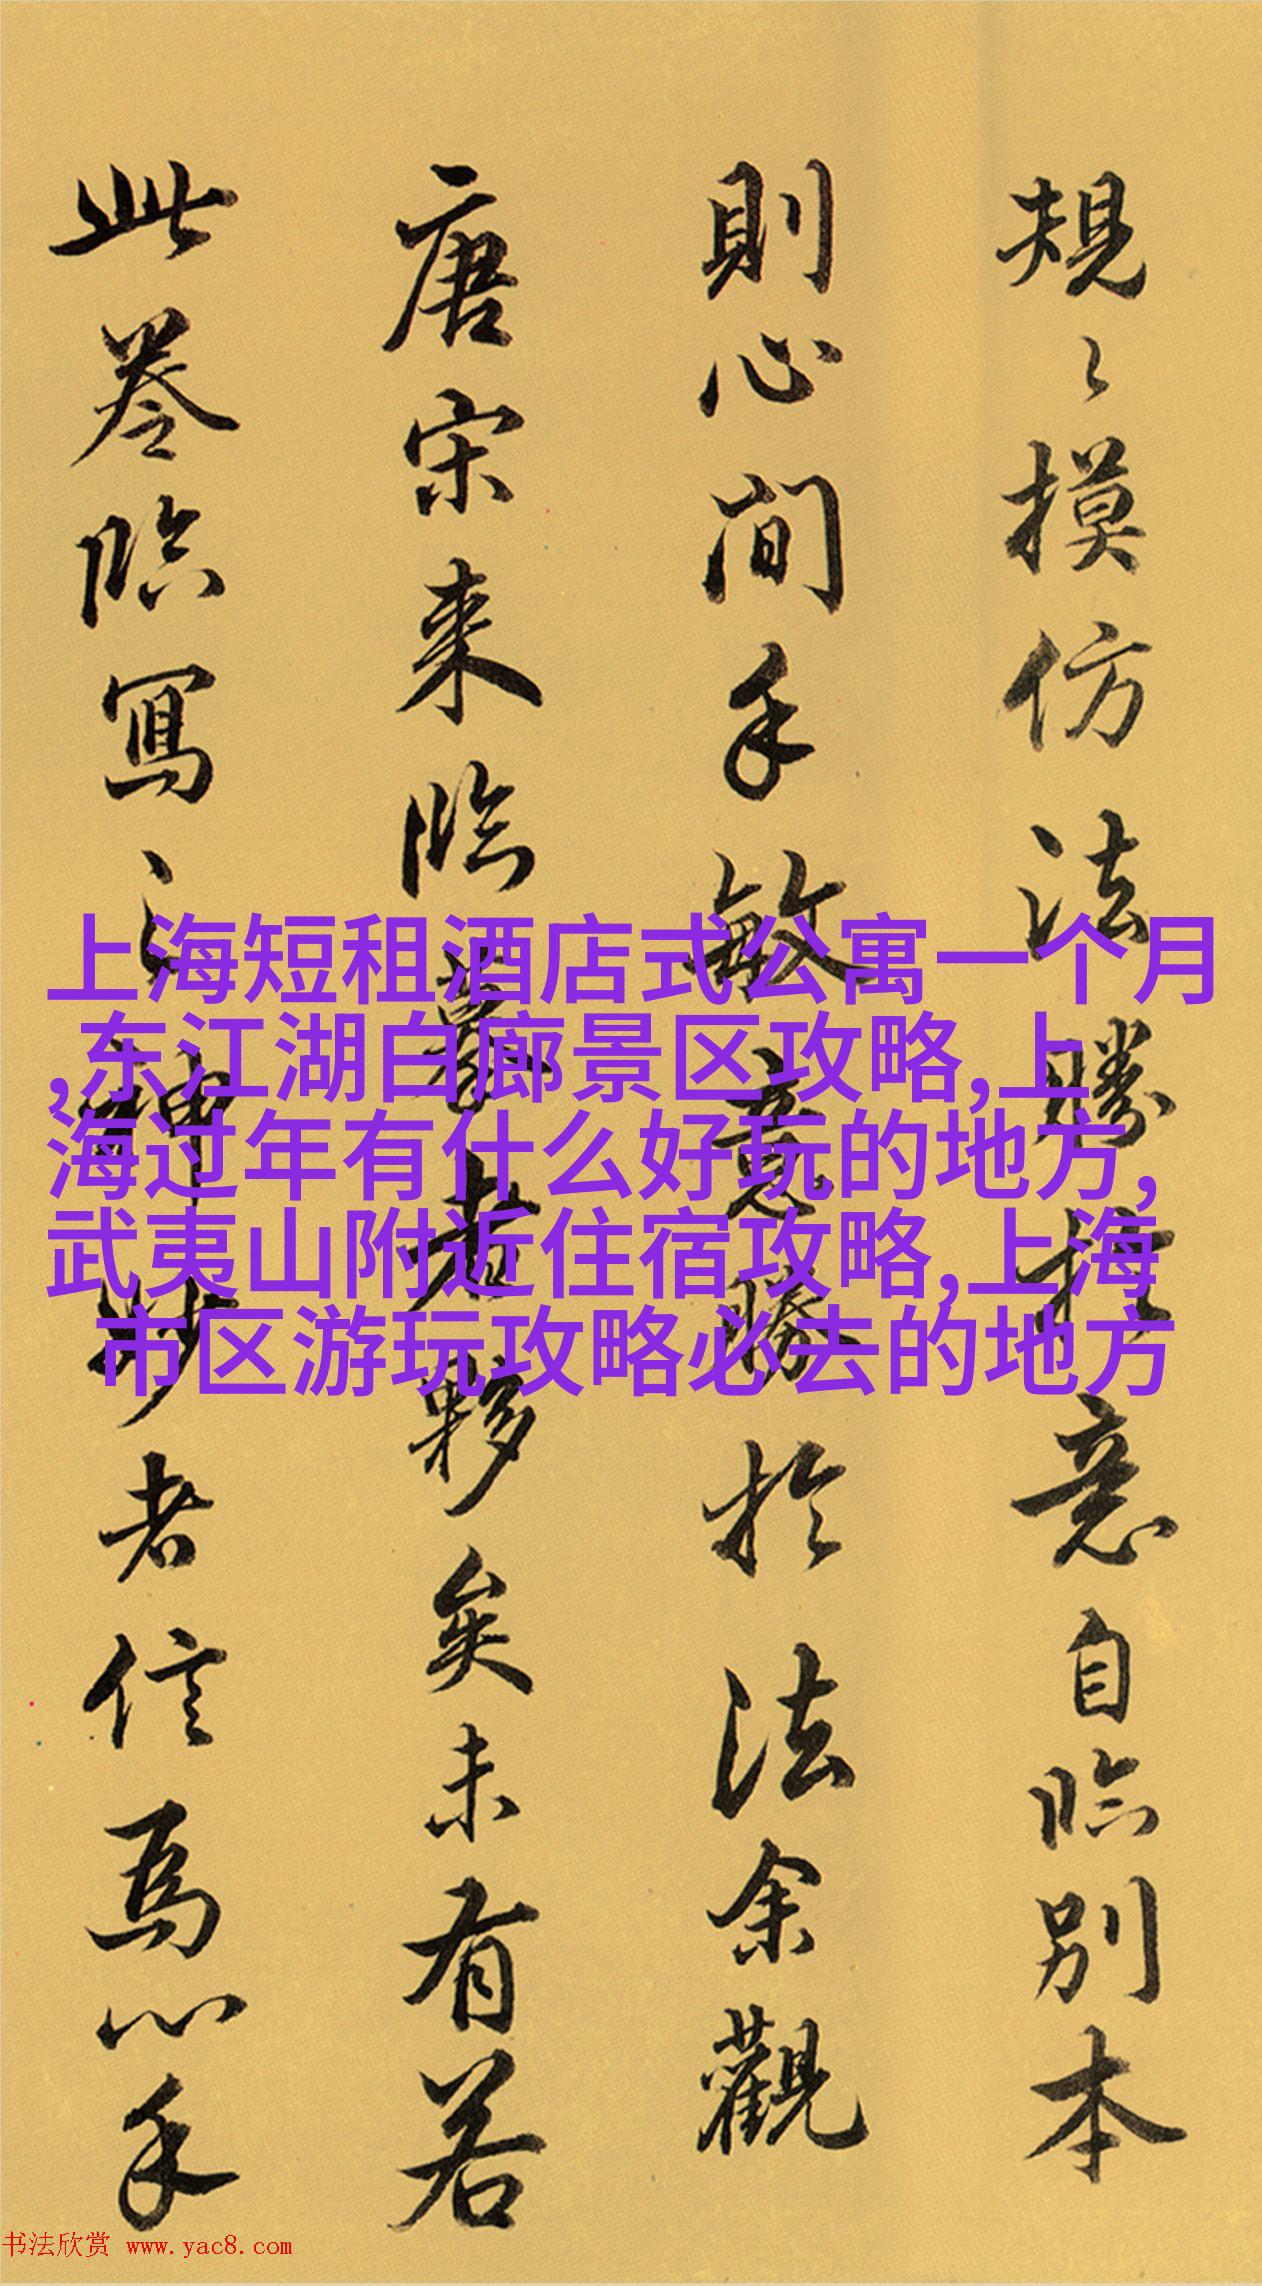 規〻摸仿法勝於意自臨别本
則心間手敏意勝於法余觀
唐宋来臨摹者夥矣未有若
此卷臨寫之神妙者信焉心手
上海短租酒店式公寓一个月
,东江湖白廊景区攻略,上
海过年有什么好玩的地方,
武夷山附近住宿攻略,上海
市区游玩攻略必去的地方
书法欣赏 www.yac8.com